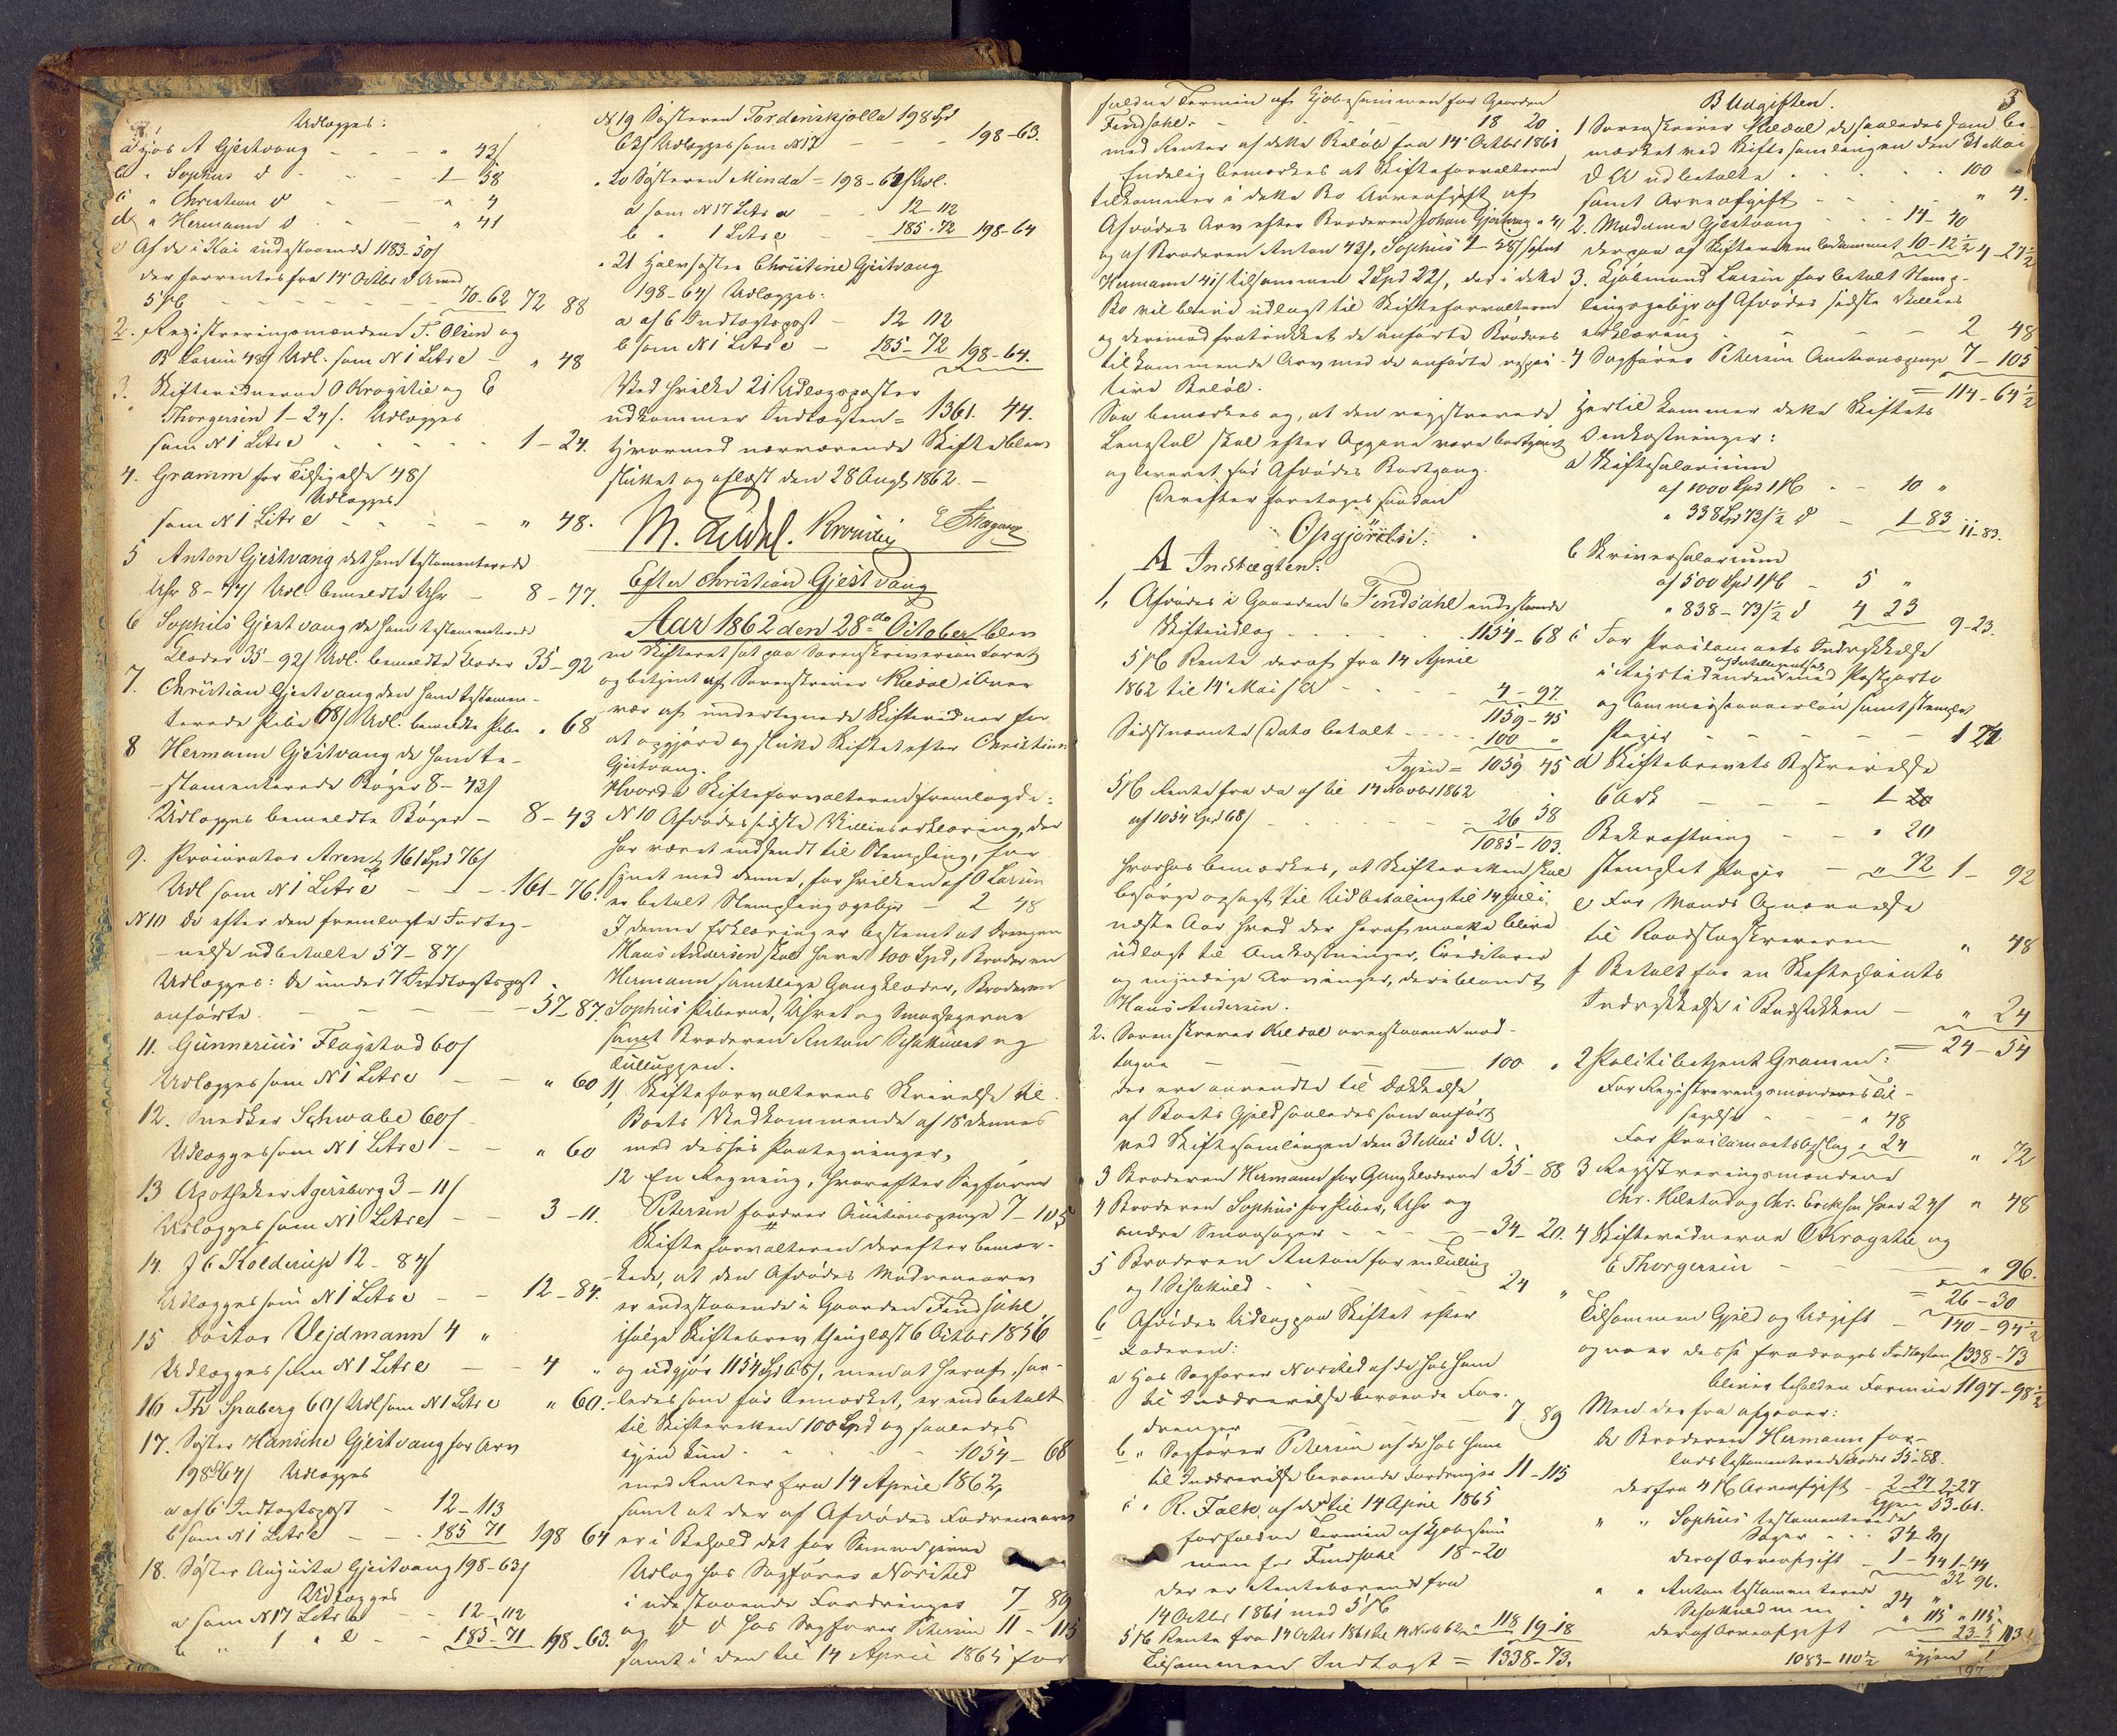 Udlægges:
a Hos A Gjestvang - - - " 43/
b " Sophus d - - - 1 - 58
c " Christian d - - " 4
d " Hermann d - - " 41
e Af de i Kai indestaaende 1183-50/
der forrentes fra 14 Octbr d. A med
5 pC - - - 70-62 72 88
2. Registreringsmændene T. Olsen og
B Larsen 48/ Udl. som N 1 Litr e - " 48
3. Skiftevidnerne O Krogstie og E
Thorgersen 1-24/. Udlægges
som N 1 Litr e - - - 1-24.
4. Gramm for Tilsigelse 48/
Udlægges
som N 1 Litr e - - - " 48.
5 Anton Gjestvang det ham testamenterede
Uhr 8-77/ Udl. bemeldte Uhr - 8-77.
6 Sophus Gjestvang de ham testamenterede
Klæder 35-92/ Udl. bemeldte Klæder 35-92
7. Christian Gjestvang den ham testamen-
terede Pibe 68/ Udl. bemeldte Pibe " 68
8 Hermann Gjestvang de ham te-
-stamenterede Bøger 8-43/
Udlægges bemeldte Bøger - 8-43
9. Procurator Arentz 161 Spd 76/
Udl som N 1 Litr e - - - 161-76.
N 10 De efter den fremlagte Forteg-
-nelse udbetalte 57-87/
Udlægges: De under 7 Indtægtspost
anførte. - - - - 57-87.
11. Gunnerius Flagstad 60/
Udlægges som N 1 Litr e - - " 60
12. Snedker Schwabe 60/
Udlægges som N 1 Litr e - - " 60
13 Apotheker Agersborg 3-11/
Udlægges som N 1 Litr e - - 3-11.
14. J C Kolderup 12-84/
Udlægges som N 1 Litr e - - 12-84.
15 Doctor Vejdmann 4 "
Udlægges som N 1 Litr e - - 4 "
16 Th Spaberg 60/ Udl som N 1 Litr e " 60.
17. Søster Hansine Gjestvang for Arv
198 Spd 64/ Udlægges
a af 6 Indtægtspost - 12-113
b som N 1 Litr e - - 185 71 198 64
18. Søster Augusta Gjestvang 198-63/
Udlægges
a som N 17 Litr a - - 12-112
b " 1 " e - - 185-71 198-63.
N 19 Søsteren Tordenskjolla 198 Spd
63/ Udlægges som N 18 - - - 198-63.
" 20 Søsteren Minda = 198-64/ Udl.
a som N 17 Litr a - - 12-112
b " 1 Litr e - - 185-72 198-64
" 21 Halvsøster Christine Gjestvang
198-64/ Udlægges:
a af 6 Indtægtspost - 12 112
b som N 1 Litr e - 185-72 198-64.
Ved hvilke 21 Udlægsposter
udkommer Indtægten = 1361. 44.
Hvormed nærværende Skifte blev
sluttet og oplæst den 28 Augs 1862. -
Efter Christian Gjestvang
Aar 1862 den 28de October blev
en Skifteret sat paa Sorenskrivercontoret
og betjent af Sorenskriver Kildal i Over
vær af undertegnede Skiftevidner for
at opgjøre og slutte Skiftet efter Christian
Gjestvang.
Hvorda Skifteforvalteren fremlagde:
N 10 Afdødes sidste Villieserklæring, der
har været indsendt til Stempling, for
synet med denne, for hvilken af O Larsen
er betalt Stemplingsgebyr - 2 48
I denne Erklæring er bestemt at Drengen
Hans Andersen skal have 100 Spd, Broderen
Hermann samtlige Gangklæder, Broderen
Sophus Piberne, Uhret og Smaasagerne
samt Broderen Anton
11, Skifteforvalterens Skrivelse til
Boets Vedkommende af 18 dennes
med disses Paategninger,
12 En Regning, hvorefter Sagfører
Petersen fordrer Auctionspenge 7-105
Skifteforvalteren derefter bemær-
kede, at den Afdødes Mødrenearv
er indestaaende i Gaarden Findsahl
ifølge Skiftebrev thinglæst 6 Octbr 1856
og udgjør 1154 Spd 68/, men at heraf, saa-
ledes som før bemærket, er indbetalt
til Skifteretten 100 Spd og saaledes
igjen kun - - - 1054 - 68
med Renter fra 14 April 1862,
samt at der af Afdødes Fædrenearv
er i Behold det for
Udlæg hos Sagfører Norsted
i udestaaende Fordringer 7-89
og d d hos Sagfører Petersen 11-115
samt i den til 14 April 1865 for
faldne Termin af Kjøbesummen for Gaarden
Findsahl - - - 18 20.
med Renter af dette Beløb fra 14 Octbr 1861
Endelig bemærkes at Skifteforvalteren
tilkommer i dette Bo Arveafgift af
Afdødes Arv efter Broderen Johan Gjestvang " 4/
og af Broderen Anton 43/, Sophus 1-58/ samt
Hermann 41/ tilsammen 2 Spd 22/, der i dette
Bo vil blive udlagt til Skifteforvalteren
og derimod fratrukket de anførte Brødres
tilkommende Arv med de anførte respec-
tive Beløb.
Saa bemærkes og, at den registrerede
Lænestol skal efter Opgave være bortgivet
og leveret før Afdødes Bortgang.
Derefter foretoges saadan
Opgjørelse:
A Indtægten:
1, Afdødes i Gaarden Findsahl indestaaende
Skifteudlæg - - - 1154-68
5 pC Rente deraf fra 14 April
1862 til 14 Mai s. A - - - 4-97
1159-45
Sidstnævnte Dato betalt - - - 100 "
Igjen = 1059 45
5 pC Rente fra da af til 14 Novbr 1862
af 1054 Spd 68/ - - - 26 58
1085-103.
hvorhos bemærkes, at Skifteretten skal
besørge opsagt til Udbetaling til 14 Juli
næste Aar hvad der heraf maatte blive
udlagt til Omkostninger, Creditorer
og myndige Arvinger, deriblandt
Hans Andersen.
2. Sorenskriver Kildal ovenstaaende mod-
tagne - - - 100 "
der ere anvendte til Dækkelse
af Boets Gjeld saaledes som anført
ved Skiftesamlingen den 31 Mai d. A.
3 Broderen Hermann for Gangklæderne 55-88
4 Broderen Sophus for Piber, Uhr og
andre Smaasager - - - 34-20.
5 Broderen Anton for en
og 1 - - - 24 "
6 Afdødes Udlæg paa Skiftet efter
Faderen:
a Hos Sagfører Norsted af de hos ham
til Inddrivelse beroende For-
dringer - - - 7 89
b " Sagfører Petersen af de hos ham
til Inddrivelse beroende Fordringer 11-115
c " R. Falk, af de til 14 April 1865
forfaldne Termin af Kjøbesum
men for Findsahl 18-20
der er Rentebærende fra
14 Octbr 1861 med 5 pC
5 pC Rente fra 14 Octbr 1861 til 14 Novb 62 " 118 19-18
Tilsammen Indtægt = 1338-73.
B Udgiften. 3
1 Sorenskriver Kildal de saaledes som be-
mærket ved Skiftesamlingen den 31 Mai
d. A udbetalte - - - 100 "
samt Arveafgift - - - " 4.
2. Madame Gjestvang - - - 14-40
derpaa af Skifteretten bekommet 10-12½ 4-27½
3. Kjøbmand Larsen for betalt Stemp-
lingsgebyr af Afdødes sidste Villies
erklæring - - - 2 48
4 Sagfører Petersen Auctionspenge 7-105
= 114-64½
Hertil kommer dette Skiftets
Omkostninger:
a Skiftesalarium
af 1000 Spd 1 pC - - 10 "
" 338 Spd 73/½ d - 1 83 11-83.
b Skriversalarium
af 500 Spd 1 pC - 5 "
" 838-73/½ d 4 23 9-23.
c For Proclamaets Indrykkelse
og Intelligentseds
i Rigstidenden med Postporto
og Commissionairløn samt stemplet
Papir - - - 1 21
d Skiftebrevets Beskrivelse
6 Ark - - - 1-20
Bekræftning - - " 20
stemplet Papir - " 72 1-92
e For Mands Opnævnelse
til Raadstueskriveren " 48
f Betalt for en Skifteplacats
Indrykkelse i Budstikken - " 24
= 24-54
2 Politibetjent Gramm:
For Registreringsmændenes Til-
sigelse - - " 48
For Proclamaets Opslag " 24 " 72
3 Registreringsmændene
Chr. Helstad og Chr. Erichsen hver 24/ " 48
4 Skiftevidnerne O Krogstie og
E Thorgersen - - - " 96.
= 26-30
Tilsammen Gjeld og Udgift - 140-94½
og naar disse fradrages Indtægten 1338-73
bliver beholden Formue 1197-98½
Men derfra afgaaer:
De Broderen Hermann for-
lods testamenterede Klæder 55-88.
derfra 4 pC Arveafgift - 2-27 2-27
Igjen 53-61.
" " Sophus testamenterede
Sager - - - 34-20/
deraf Arveafgift - 1-44 1-44
32 96.
" " Anton testamenterede
m m " 24 "
deraf Arveafgift " 115 " 115
23-5
1083-110½ igjen